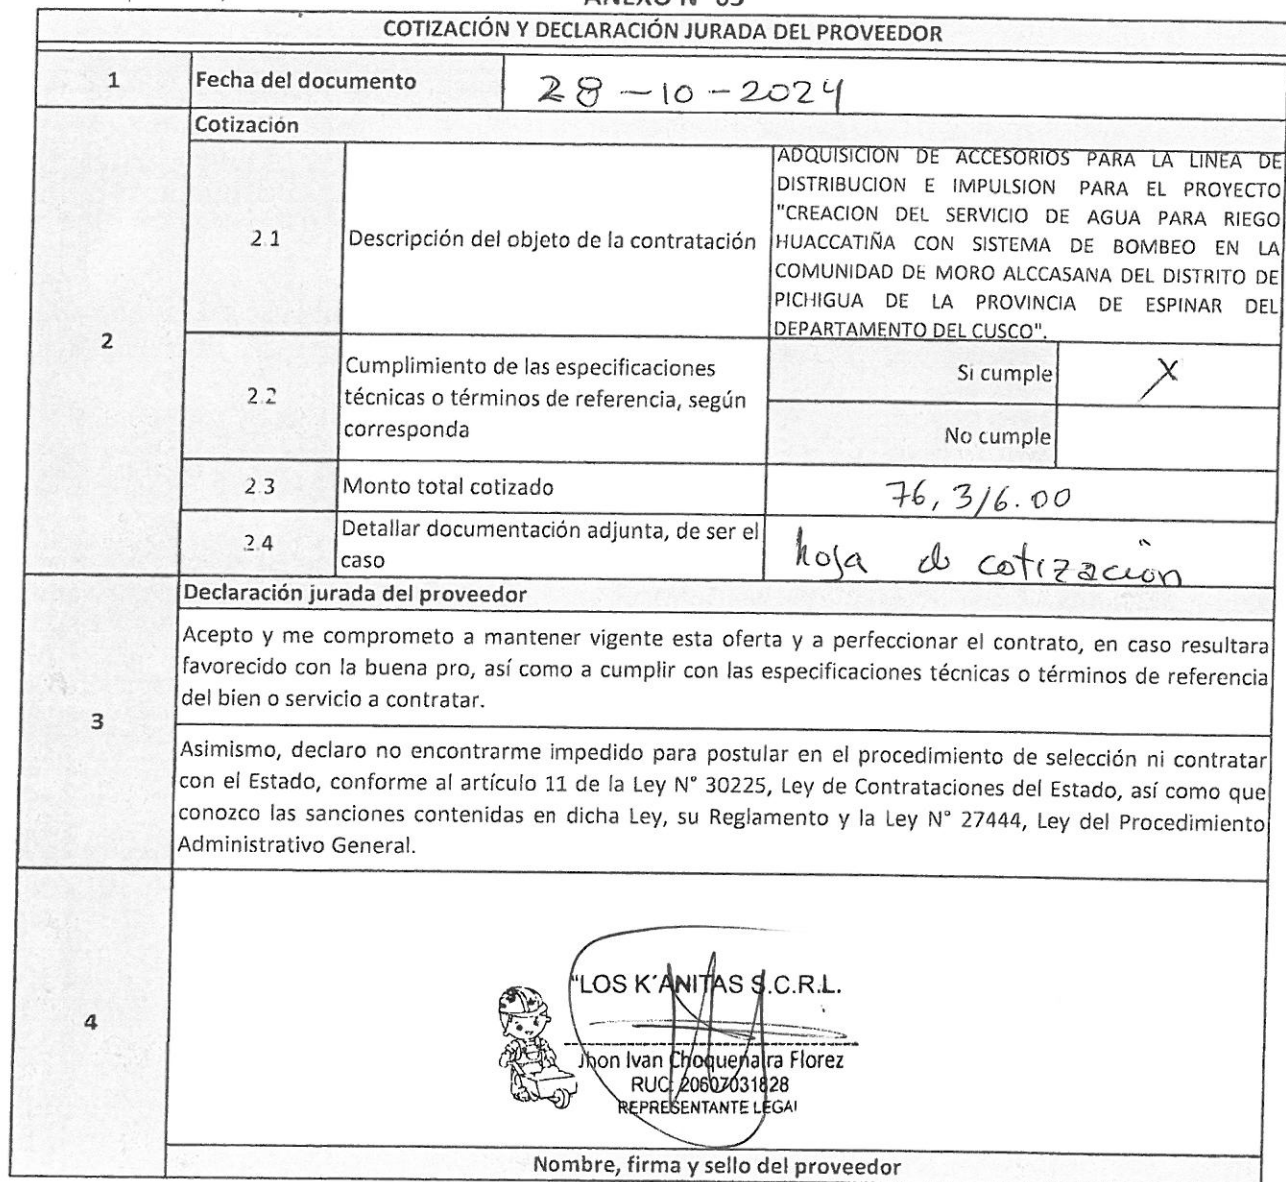 ANEXO N° 05
COTIZACIÓN Y DECLARACIÓN JURADA DEL PROVEEDOR
1 Fecha del documento 28-10-2024
2 Cotización
2.1 Descripción del objeto de la contratación
ADQUISICION DE ACCESORIOS PARA LA LINEA DE
DISTRIBUCION E IMPULSION PARA EL PROYECTO
"CREACION DEL SERVICIO DE AGUA PARA RIEGO
HUACCATIÑA CON SISTEMA DE BOMBEO EN LA
COMUNIDAD DE MORO ALCCASANA DEL DISTRITO DE
PICHIGUA DE LA PROVINCIA DE ESPINAR DEL
DEPARTAMENTO DEL CUSCO".
2.2 Cumplimiento de las especificaciones
técnicas o términos de referencia, según
corresponda
Si cumple X
No cumple
2.3 Monto total cotizado 76,316.00
2.4 Detallar documentación adjunta, de ser el
caso
hoja de cotización
3 Declaración jurada del proveedor
Acepto y me comprometo a mantener vigente esta oferta y a perfeccionar el contrato, en caso resultara
favorecido con la buena pro, así como a cumplir con las especificaciones técnicas o términos de referencia
del bien o servicio a contratar.
Asimismo, declaro no encontrarme impedido para postular en el procedimiento de selección ni contratar
con el Estado, conforme al artículo 11 de la Ley N° 30225, Ley de Contrataciones del Estado, así como que
conozco las sanciones contenidas en dicha Ley, su Reglamento y la Ley N° 27444, Ley del Procedimiento
Administrativo General.
4
"LOS K´ANITAS S.C.R.L.
Jhon Ivan Choquenaira Florez
RUC: 20607031828
REPRESENTANTE LEGAL
Nombre, firma y sello del proveedor